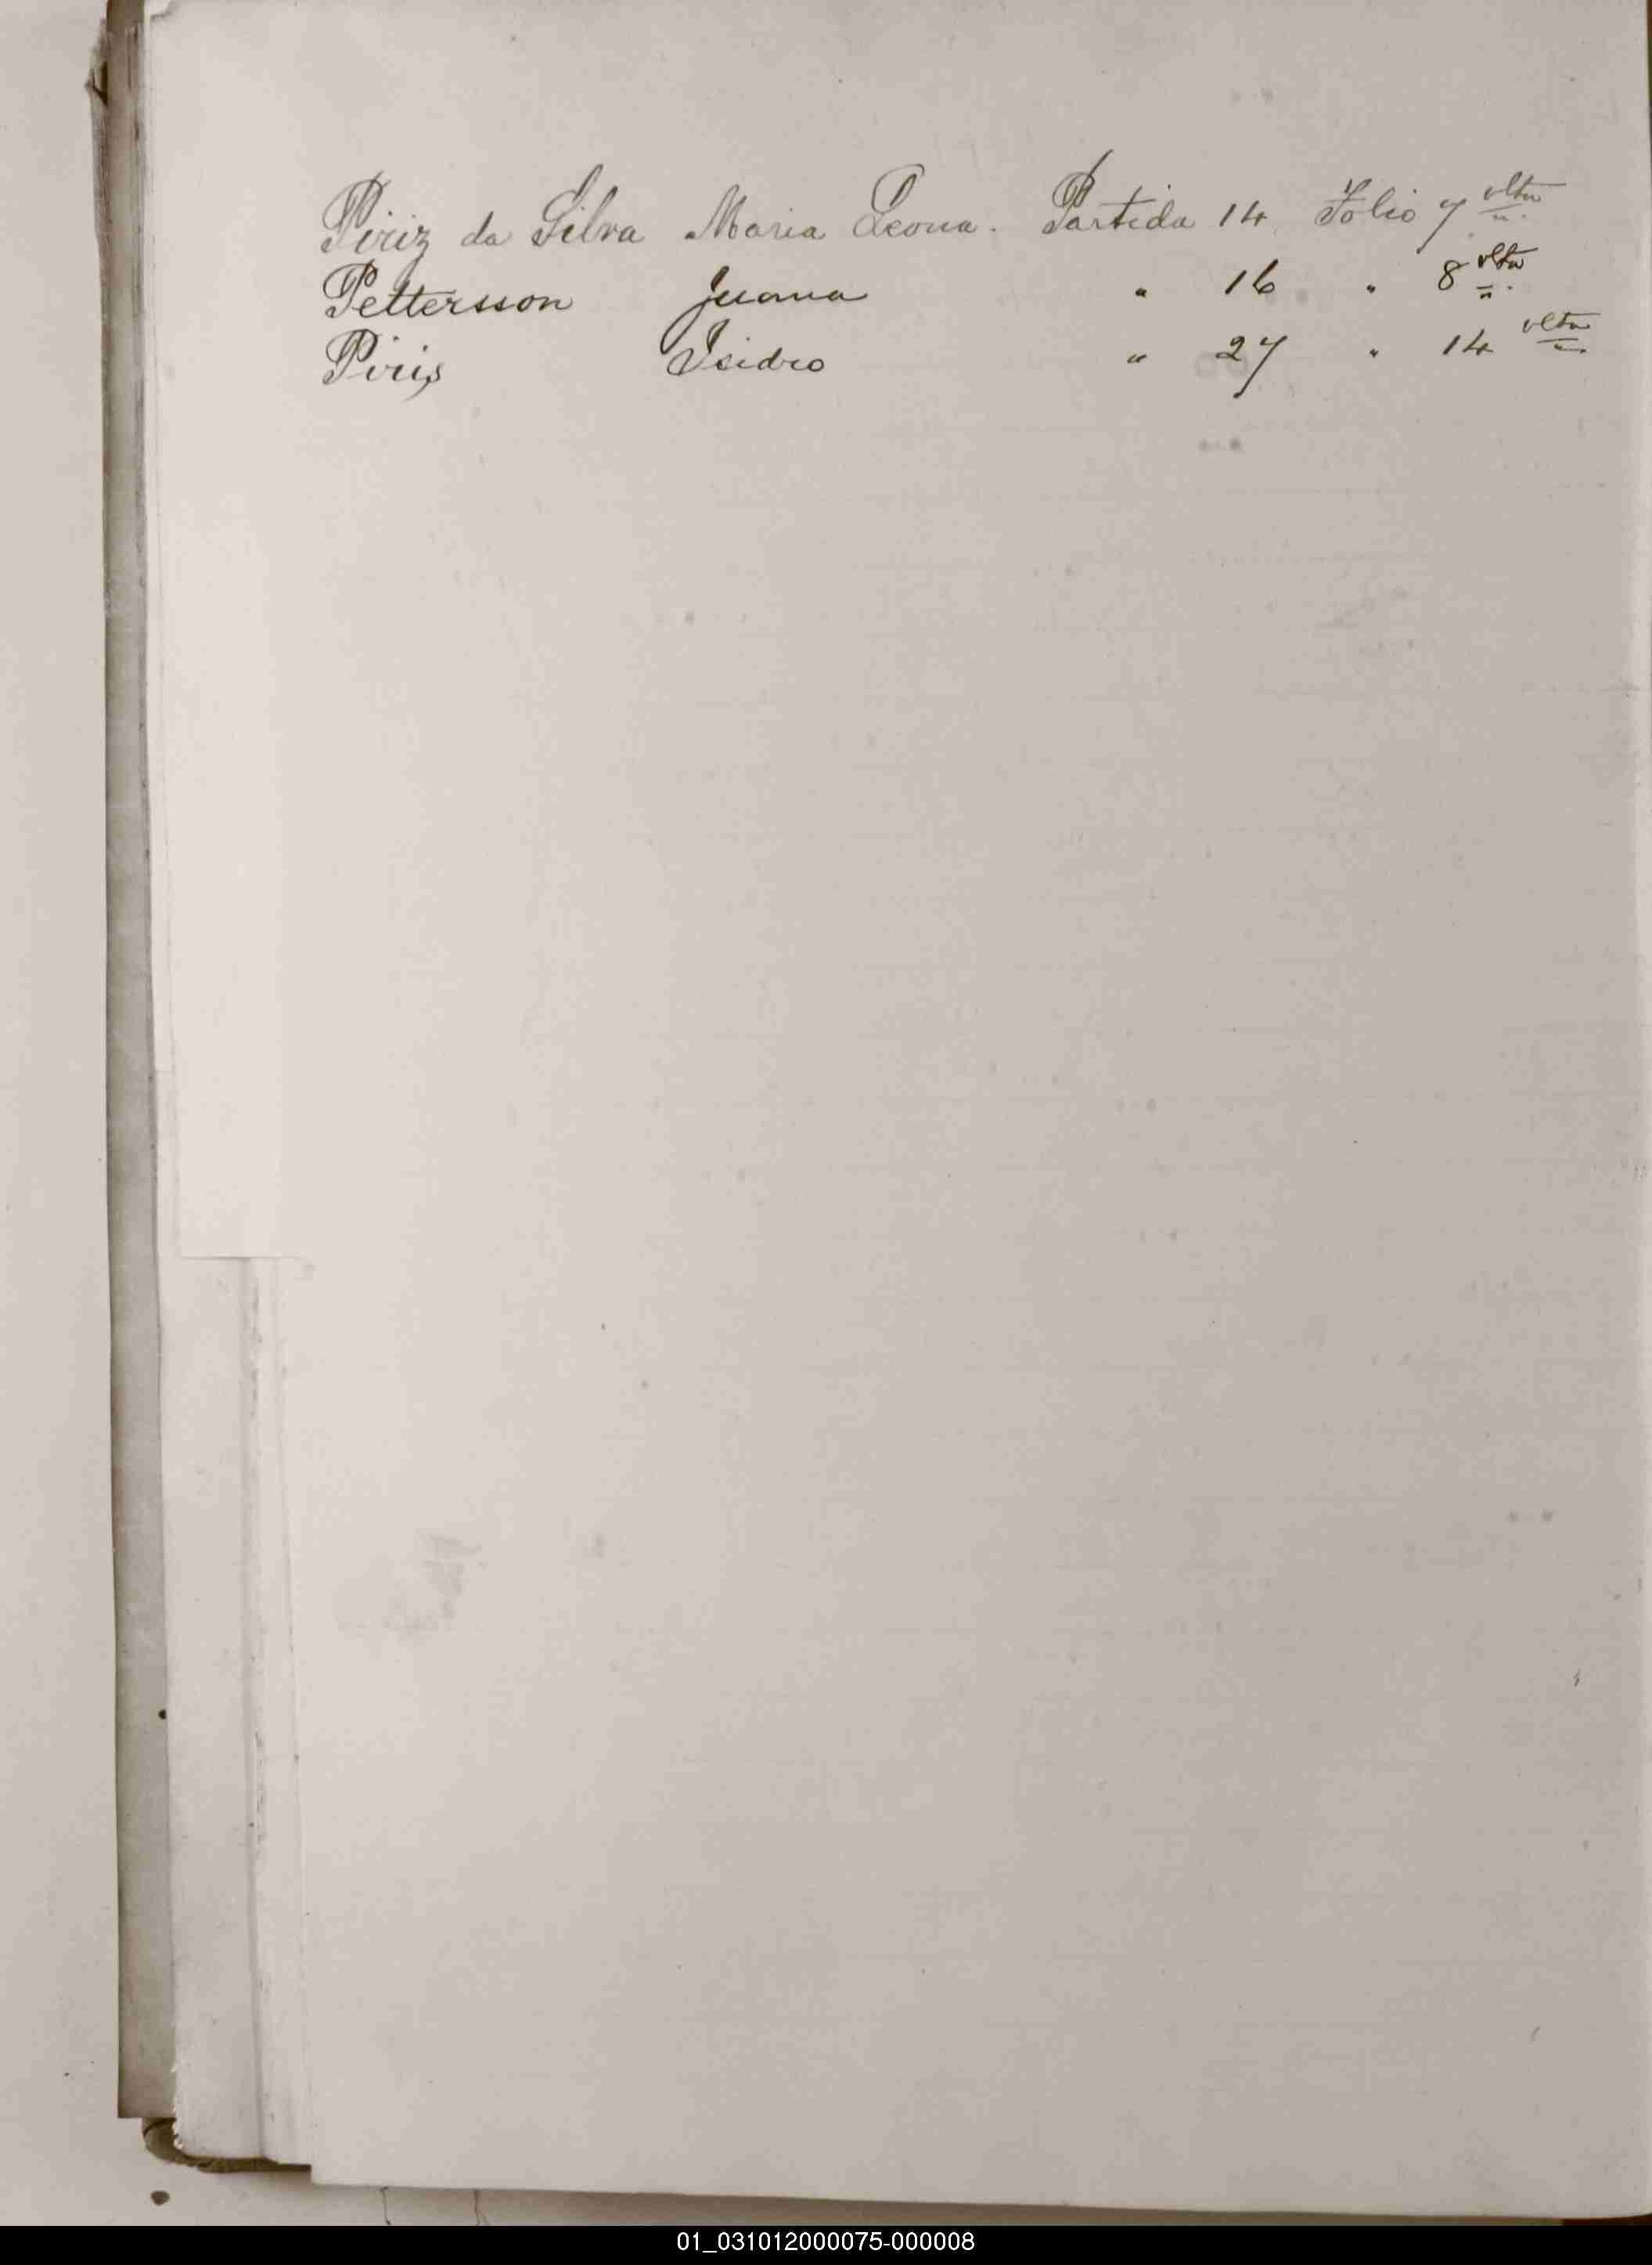 Piriz da Silva Maria Leona. Partida 14 Folio 7 vlta
Pettersson Juana " 16 " 8 vlta
Piris Isidro " 27 " 14 vlta
01_031012000075-000008